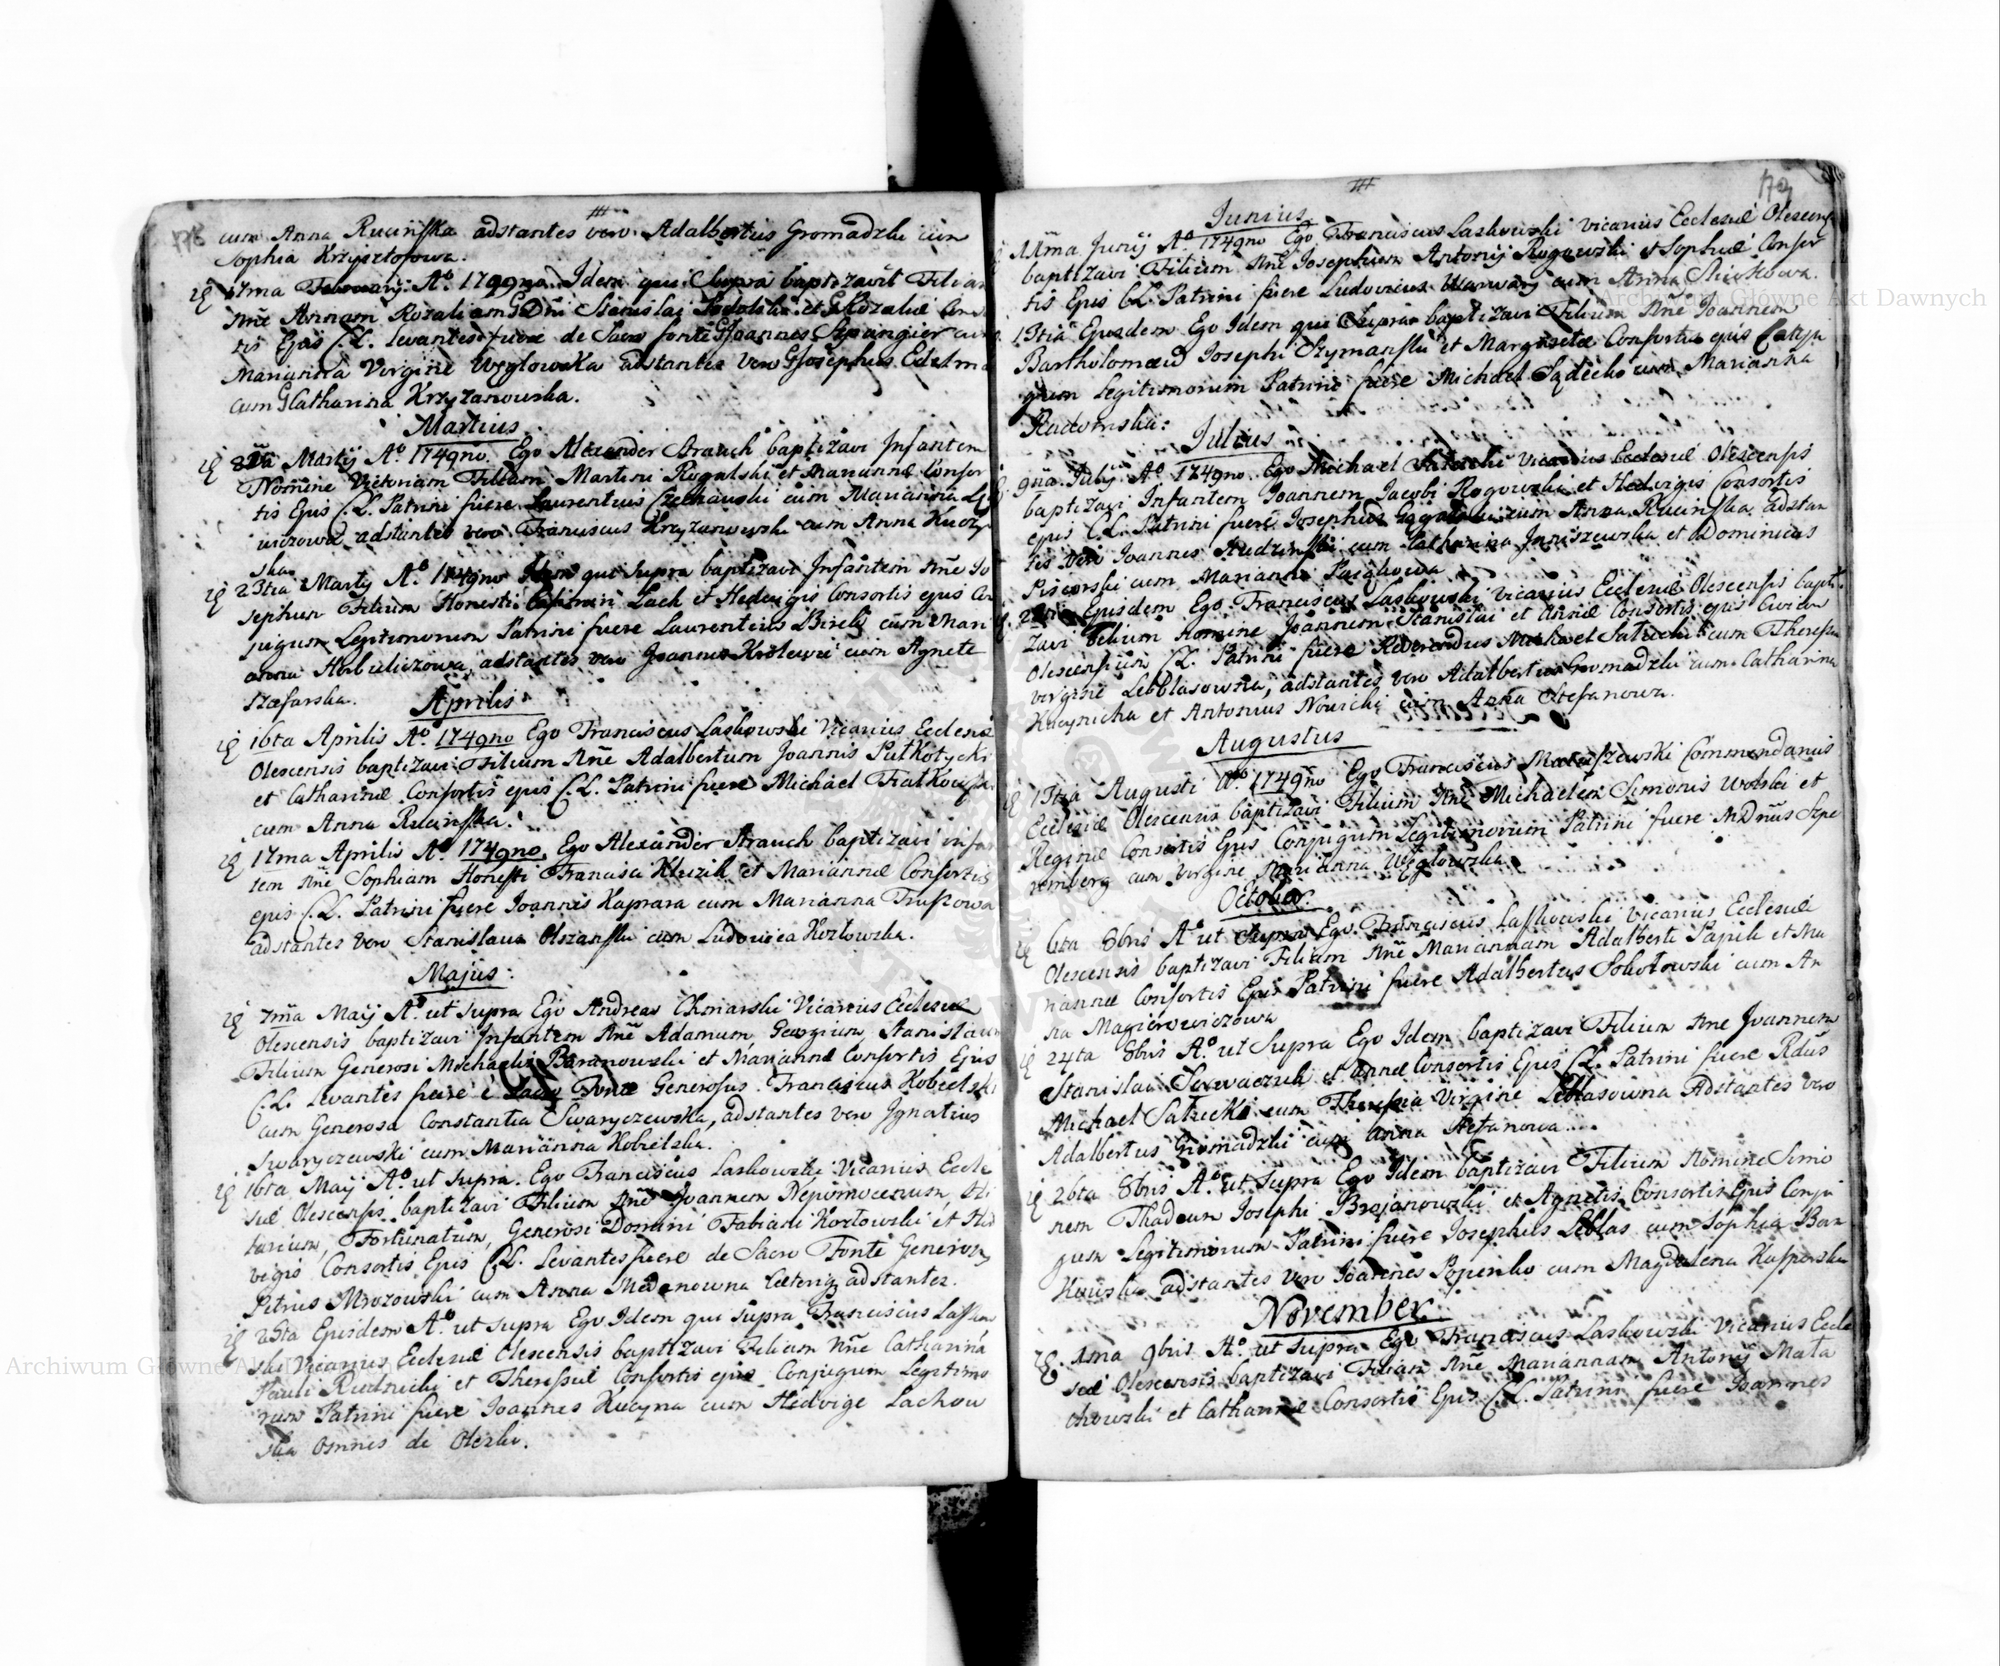 178
cum Anna Rucińska adstantes vero Adalbertus Gromadzki cum
Sophia Krzysztofowa.
17ma February Aº 1749no Idem qui Supra baptizavit Filiam
Nñe Annam Rozaliam GDñi Stanislai Podolski et GRozaliæ Conso
tis Ejus C.L. Levantes fuere de Sacro fonte GJoannes Szpangier cum
Marianna Virgine Węglowska adstantes vero GJosephus Edelma
cum GCatharina Krzyżanowska.
Martius
Marty Aº 1749no. Ego Alexander Strauch baptizavi Infantem
Nomine Victoriam Filiam Martini Rogalski et Mariannæ Consor
tis Ejus C.L. Patrini fuere Laurentius Czechański cum Marianna
wiczowa adstantes vero Franciscus Krzyżanowski cum Anna Kuczy
ska
23tia Marty Aº 1749no Idem qui supra baptizavi Infantem Nñe Jo
sephum Filium Honesti Casimiri Lach et Hedvigis Consortis ejus Con
jugum Legitimorum Patrini fuere Laurentius Birecki cum Mari
anna Harbulczowa, adstantes vero Joannes Krolewic cum Agnete
Szafarska.
Aprilis
16ta Aprilis Aº 1749no Ego Franciscus Laskowski Vicarius Ecclesiæ
Olescensis baptizavi Filium Nñe Adalbertum Joannis Putkotycki
et Catharinæ Consortis ejus C.L. Patrini fuere Michael Fialkowski
cum Anna Rucińska.
17ma Aprilis Aº 1749no. Ego Alexander Strauch baptizavi infan
tem Nñe Sophiam Honesti Francisci Kluzik et Mariannæ Consortis
ejus C.L. Patrini fuere Joannes Kaprara cum Marianna Truszowa
adstantes vero Stanislaus Olszański cum Ludovica Kozłowska.
Majus:
7ma Maij Aº ut supra Ego Andreas Chmarski Vicarius Ecclesiæ
Olescensis baptizavi Infantem Nñe Adamum, Georgium, Stanislaum
Filium Generosi Michaelis Baranowski et Mariannæ Consortis Ejus
C.L. Levantes fuere e Sacro Fonte Generosus Franciscus Kobielski
cum Generosa Constantia Swaryczewska, adstantes vero Ignatius
Swaryczewski cum Marianna Kobielska.
16ta Maij Aº ut supra Ego Franciscus Laskowski Vicarius Eccle
siæ Olescensis baptizavi Filium Nñe Joannem Nepomucenum, Hi
larium, Fortunatum, Generosi Domini Fabiani Kozłowski et Hed
vigis Consortis Ejus C.L. Levantes fuere de Sacro Fonte Generosus
Petrus Mrozowski cum Anna Medanowna Cæteris adstantes.
25ta Ejusdem Aº ut supra Ego Idem qui supra Franciscus Lassow
ski Vicarius Ecclesiæ Olescensis baptizavi Filiam Nñe Catharinã
Pauli Rudnicki et Theressiæ Consortis ejus Conjugum Legitimo
rum Patrini fuere Joannes Kucyna cum Hedvige Lachow
ska Omnes de Olesko.
179
Junius
11ma Junij Aº 1749no Ego Franciscus Laskowski Vicarius Ecclesiæ Olescensis
baptizavi Filium Nñe Josephum Antonij Rogowski et Sophiæ Consor
tis Ejus C.L. Patrini fuere Ludovicus Warwarz cum Anna Sliwkowa.
13tia Ejusdem Ego Idem qui Supra baptizavi Filium Nñe Joannem
Bartholomæum Josephi Szymański et Margaretæ Consortis ejus Conju
gum Legitimorum Patrini fuere Michael Sądecki cum Marianna
Radomska:
Julius
9na July Aº 1749no. Ego Michael Satecki Vicarius Ecclesiæ Olescensis
baptizavi Infantem Joannem Jacobi Rogowski et Hedvigis Consortis
ejus C.L. Patrini fuere Josephus cum Anna Rucińska adstan
tes vero Joannes Rudziński cum Catharina Janiszewska et Dominicus
Pisarski cum Marianna
Ejusdem Ego Franciscus Laskowski Vicarius Ecclesiæ Olescensis bapti
zavi Filium Nomine Joannem Stanislai et Annæ Consortis ejus Civium
Olescensium C.L. Patrini fuere Reverendus Michael Satecki cum Theressia
Virgine Leblasowna, adstantes vero Adalbertus Gromadzki cum Catharina
Kucynicha et Antonius Nowicki cum Anna Stefanowa.
Augustus
13tia Augusti Aº 1749no Ego Franciscus Mateszewski Commendarius
Ecclesiæ Olescensis baptizavi Filium Nñe Michaelem Simonis Wolski et
Reginæ Consortis Ejus Conjugum Legitimorum Patrini fuere MDnus Szpe
remberg cum Virgine Marianna Węglowska.
October
6ta 8bris Aº ut Supra Ego Franciscus Laskowski Vicarius Ecclesiæ
Olescensis baptizavi Filiam Nñe Mariannam Adalberti Papik et Ma
riannæ Consortis Ejus Patrini fuere Adalbertus Sokołowski cum An
na Magierowiczowa
24ta 8bris Aº ut Supra Ego Idem baptizavi Filium Nñe Joannem
Stanislai Serwaczuk et Annæ Consortis Ejus C.L. Patrini fuere Rdus
Michael Satecki cum Theressia Virgine Leblasowna Adstantes vero
Adalbertus Gromadzki cum Anna Stefanowa.
26ta 8bris Aº ut Supra Ego Idem baptizavi Filium Nomine Simo
nem Thadeum Josephi Brojanowski et Agnetis Consortis Ejus Conju
gum Legitimorum Patrini fuere Josephus Leblas cum Sophia Ban
kowska adstantes vero Joannes Popienko cum Magdalena Kasparska
November
1ma 9bris Aº ut supra Ego Franciscus Laskowski Vicarius Eccle
siæ Olescensis baptizavi Filiam Nñe Mariannam Antonij Mata
chowski et Catharinæ Consortis Ejus C.L. Patrini fuere Joannes
Archiwum Główne Akt Dawnych
Archiwum Główne